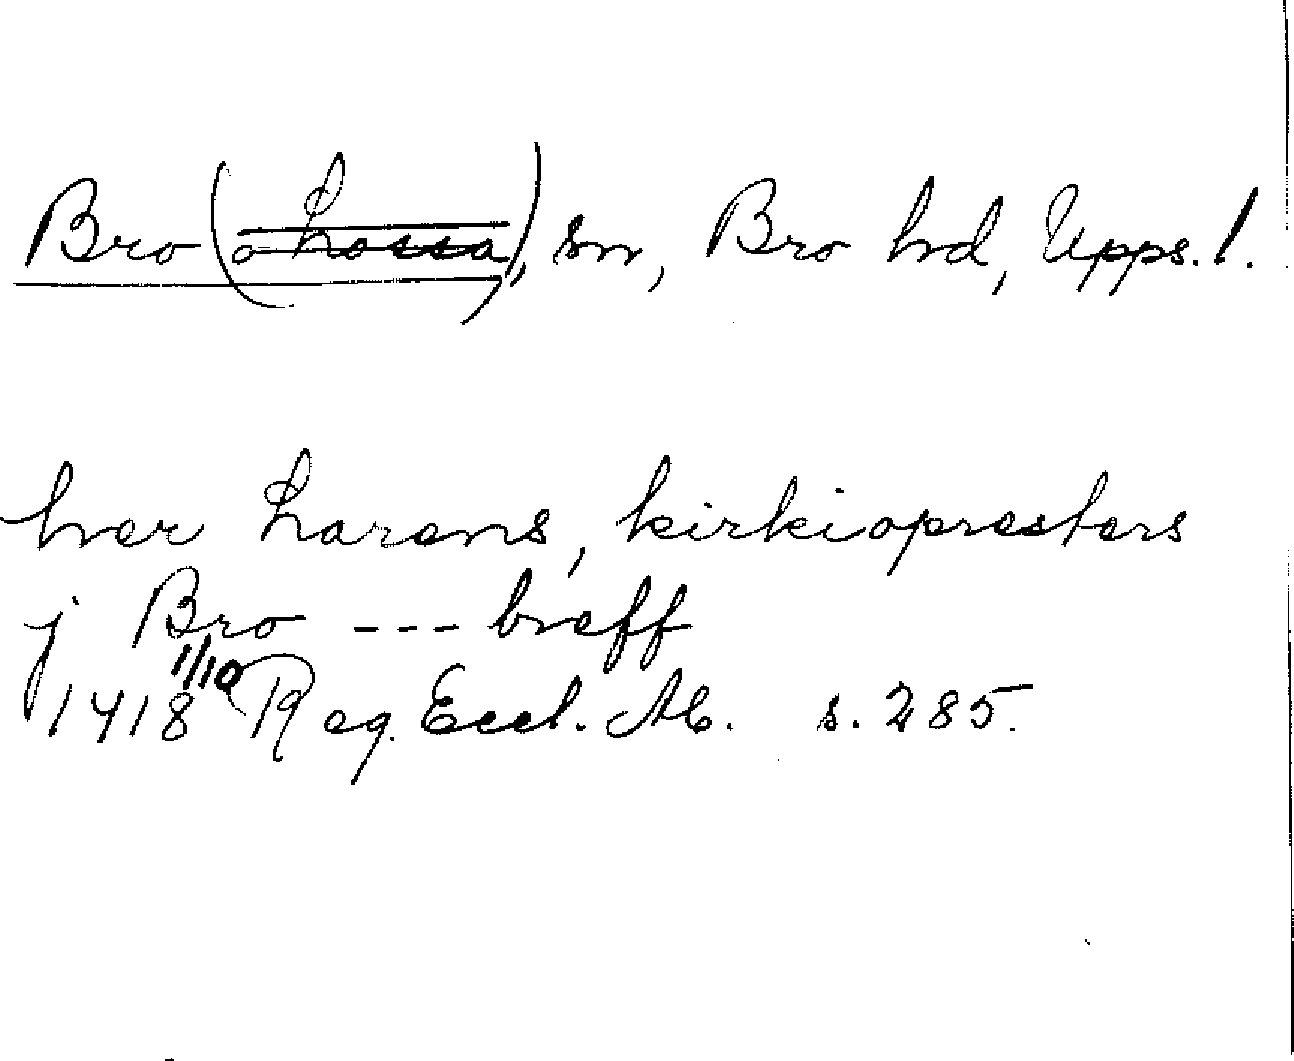 Bro (o Lossa), sn, Bro hd, Upps. l.
her Larens, kirkiopresters
j Bro --- breff
1418 1/10 Reg. Eccl. Ab. s. 285.